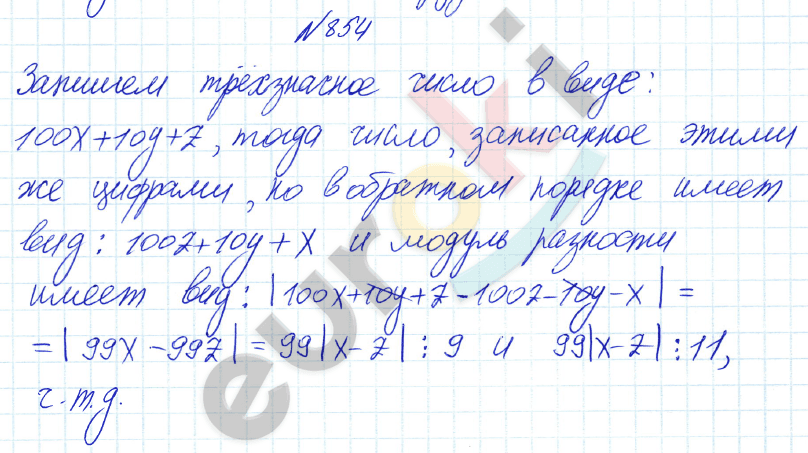 №854
Запишем трёхзначное число в виде:
100x+10y+z, тогда число, записанное этими
же цифрами, но в обратном порядке имеет
вид: 100z+10y+x и модуль разности
имеет вид: |100x+10y+z-100z-10y-x| =
=| 99x-99z| = 99|x-z| ⋮ 9 и 99|x-z| ⋮ 11,
ч.т.д.
euroki